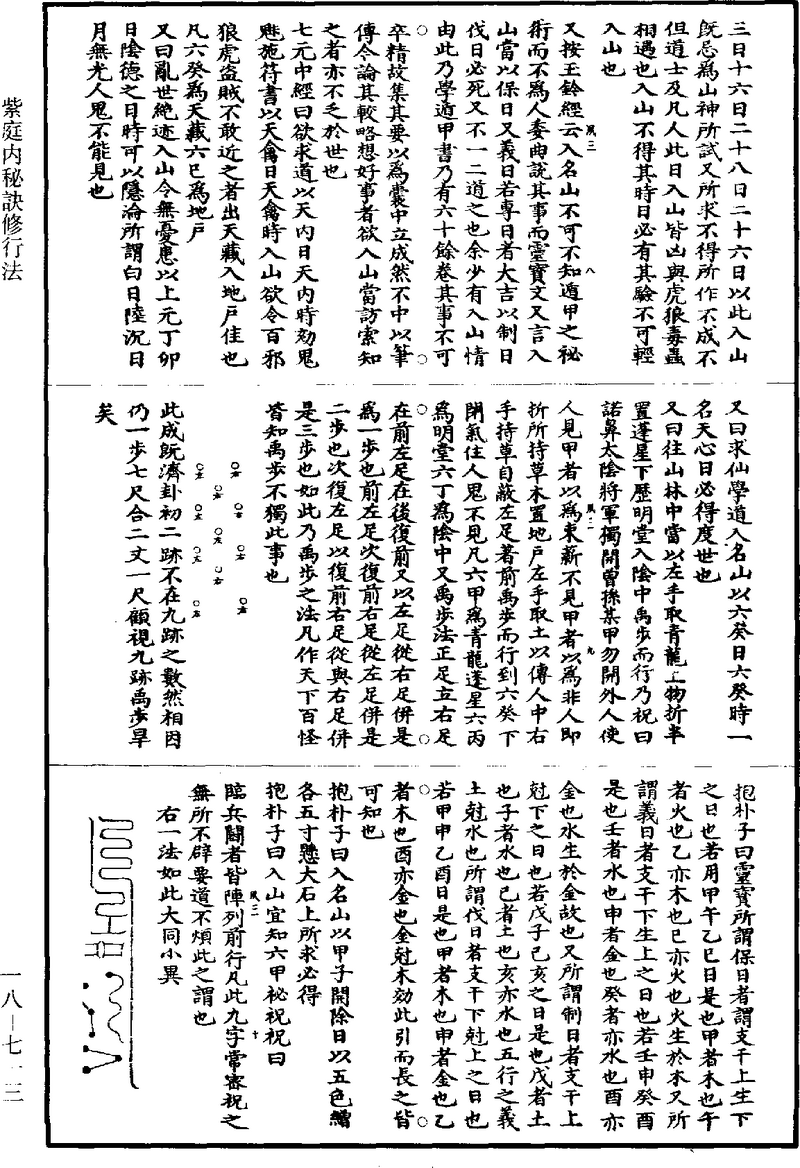 三日十六日二十八日二十六日以此入山
既忌為山神所試又所求不得所作不成不
但道士及凡人此日入山皆凶與虎狼毒蟲
相遇也入山不得其時日必有其驗不可輕
入山也
風三 八
又按玉鈐經云入名山不可不知遁甲之秘
術而不為人委曲說其事而靈寶文又言入
山當以保日又義日若專日者大吉以制日
伐日必死又不一二道之也余少有入山情
由此乃學遁甲書乃有六十餘卷其事不可
卒精故集其要以為囊中立成然不中以筆
傳今論其較略想好事者欲入山當訪索知
之者亦不乏於世也
七元中經曰欲求道以天內日天內時劾鬼
魅施符書以天禽日天禽時入山欲令百邪
狼虎盜賊不敢近之者出天藏入地戶佳也
凡六癸為天藏六巳為地戶
又曰亂世絕迹入山令無憂患以上元丁卯
日陰德之日時可以隱淪所謂白日陸沉日
月無光人鬼不能見也
又曰求仙學道入名山以六癸日六癸時一
名天心日必得度世也
又曰往山林中當以左手取青龍上物折半
置蓬星下歷明堂入陰中禹步而行乃祝曰
諾鼻太陰將軍獨開曾孫某甲勿開外人使
九
人見甲者以為束薪不見甲者以為非人即
折所持草本置地戶左手取土以傳人中右
手持草自蔽左足著前禹步而行到六癸下
閉氣住人鬼不見凡六甲為青龍蓬星六丙
為明堂六丁為陰中又禹步法正足立右足
在前左足在後復前又以左足從右足併是
為一步也前左足次復前右足從左足併是
二步也次復左足以復前右足從與右足併
是三步也如此乃禹步之法凡作天下百怪
皆知禹步不獨此事也
此成既濟卦初二跡不在九跡之數然相因
仍一步七尺合二丈一尺顧視九跡禹步旱
矣
抱朴子曰靈寶所謂保日者謂支干上生下
之日也若用甲午乙巳日是也甲者木也午
者火也乙亦木也巳亦火也火生於木又所
謂義日者支干下生上之日也若壬申癸酉
是也壬者水也申者金也癸者亦水也酉亦
金也水生於金故也又所謂制日者支干上
尅下之日也若戊子己亥之日是也戊者土
也子者水也己者土也亥亦水也五行之義
土尅水也所謂伐日者支干下尅上之日也
若甲申乙酉日是也甲者木也申者金也乙
者木也酉亦金也金尅木効此引而長之皆
可知也
抱朴子曰入名山以甲子開除日以五色繒
各五寸懸大石上所求必得
抱朴子曰入山宜知六甲祕祝祝曰
風三 十
臨兵鬪者皆陣列前行凡此九字常審祝之
無所不辟要道不煩此之謂也
右一法如此大同小異
紫庭内秘訣修行法
一八—七一三